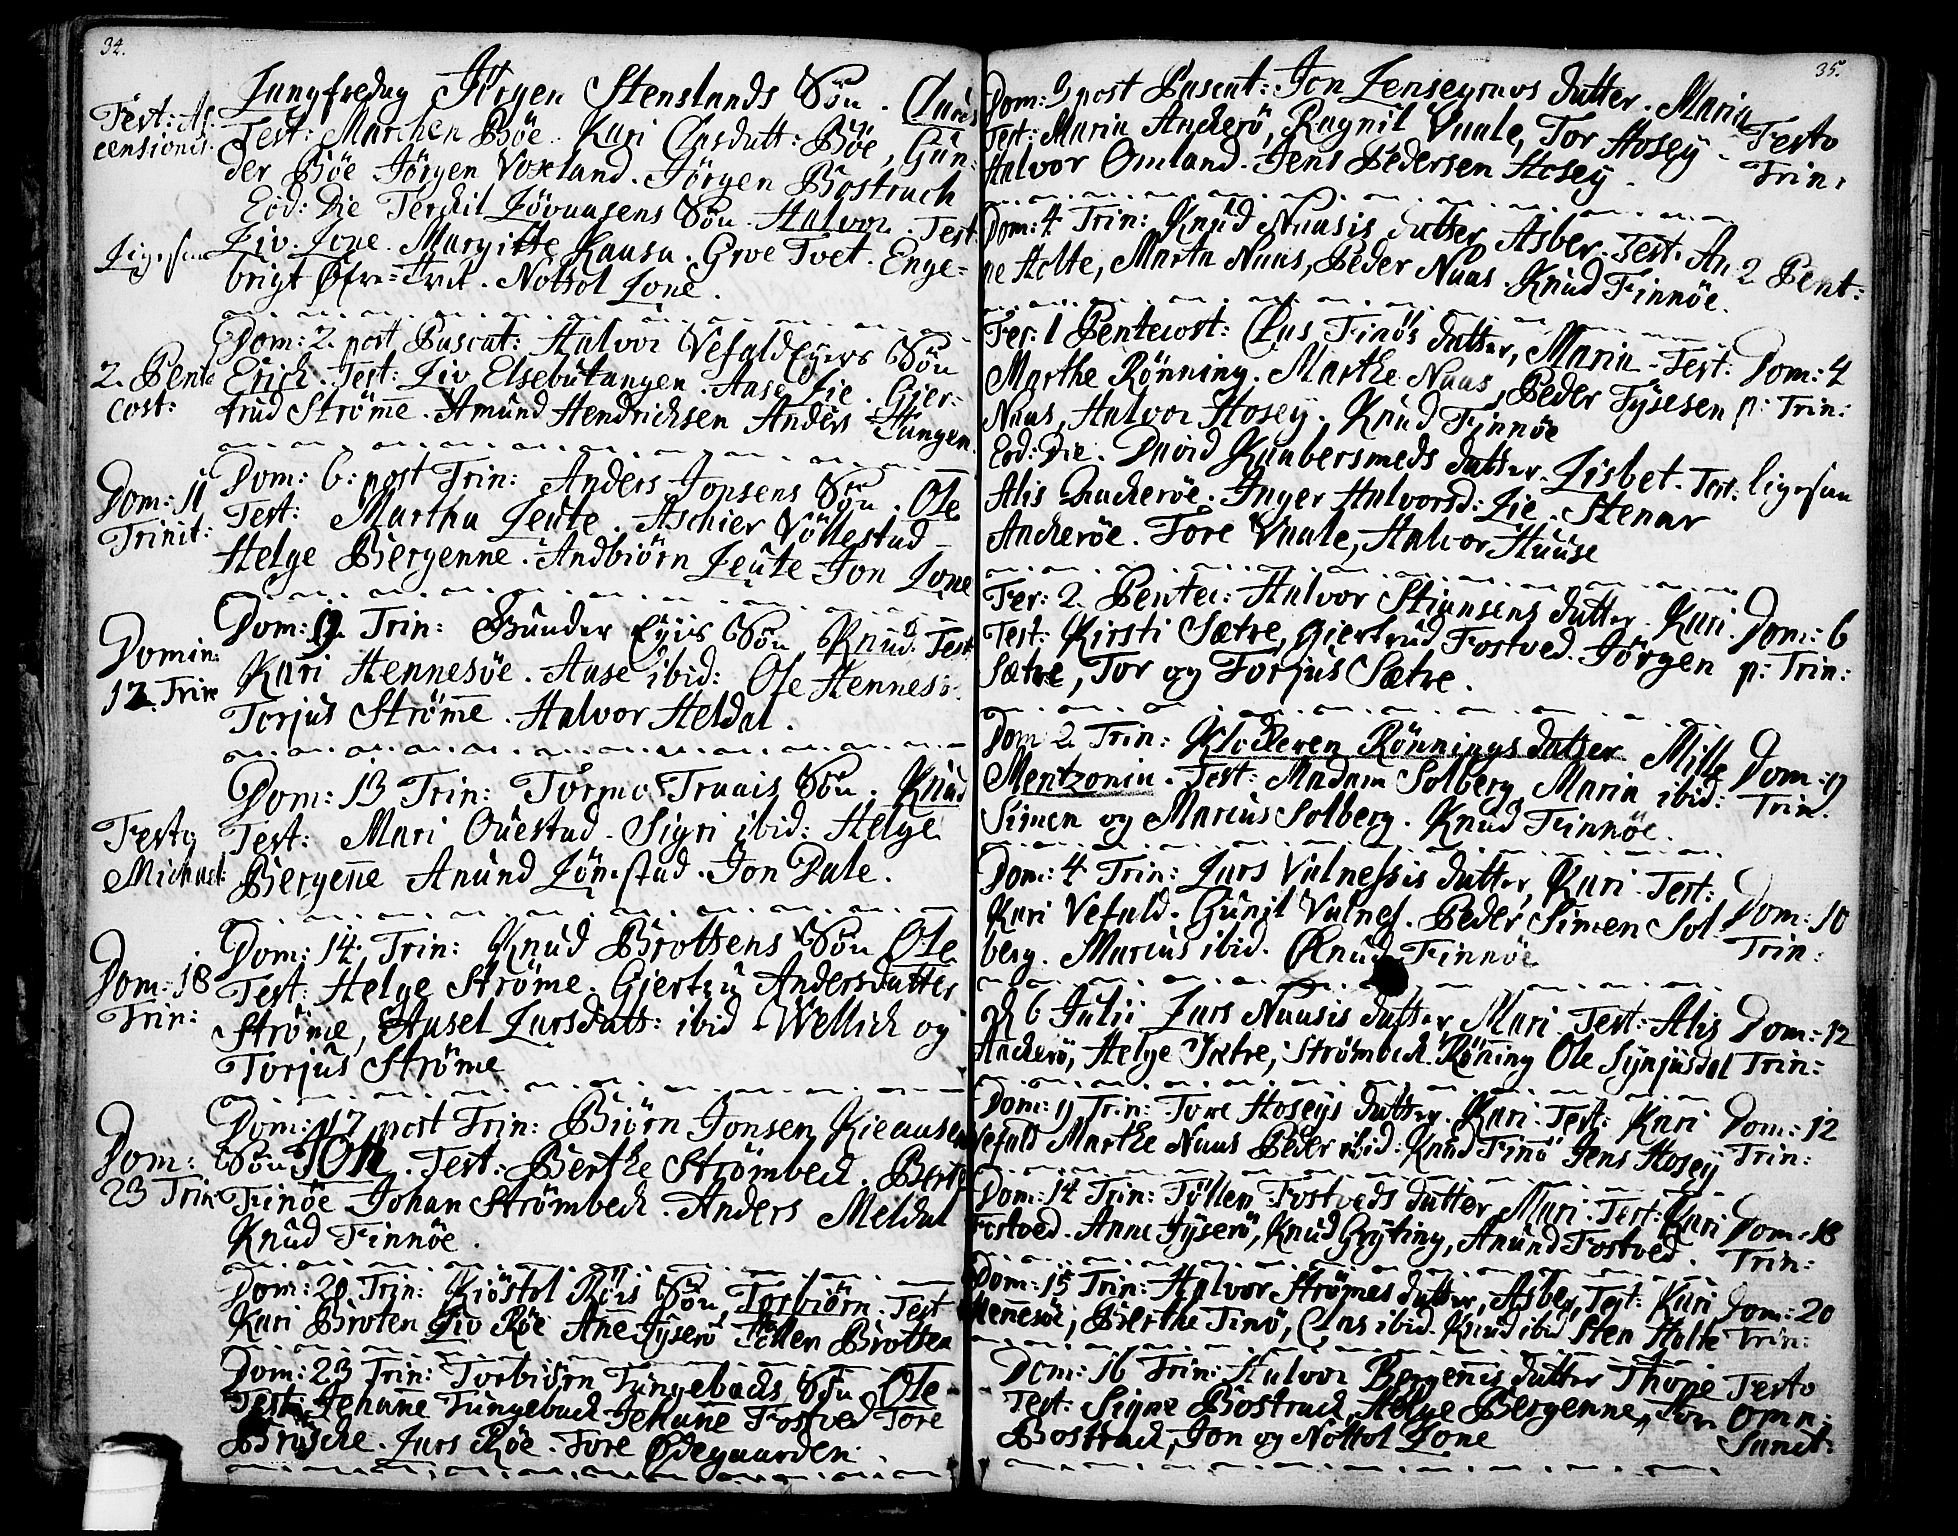 34.
Langfredag Jørgen Stenslands Søn. Claus
Fest: As-
censionis.
Test: Marchen Bøe. Kari Clasdatt: Bøe, Gun-
der Bøe Jørgen Voxland. Jørgen Bostrach
Eod: Die Terchil Søn. Halvor. Test
Ligesaa
Liv. Lone. Margitte Kaasa. Groe Tvet. Enge-
brigt Øfre-Tvet. Nottol Lone.
Dom: 2. post Pascat: Halvor Vefald Eyers Søn
2. Pente
cost:
Erich. Test: Liv Elsebutangen. Aase Lie. Gier-
trud Strøme. Amund Hendrichsen Anders Tangen
Dom: 11
Trinit:
Dom: 6: post Trin: Anders Jonsens Søn. Ole
Test: Martha Leute. Aschier Vøllestad-
Helge Bergenne. Andbiørn Leute Jon Lone
Domin:
12. Trin
Dom: 9. Trin: Gunder Eyis Søn Knud. Test
Kari Hennesøe. Aase ibid: Ole Hennesø.
Torjus Strøme. Halvor Heldal.
Dom: 13 Trin: Tormo Traais Søn. Knud
Festo
Michael:
Test: Mari Ouestad. Sigri ibid: Helge
Bergene Anund Lønestad. Jon Dale.
Dom: 18
Trin:
Dom: 14. Trin: Knud Brottens Søn Ole
Test: Helge Strøme. Giertru Andersdatter
Strøme, Husel Larsdatt: ibid. Wellich og
Torjus Strøme
Dom:
23 Trin
Dom: 17 post Trin: Biørn Jonsen Kieausen
Søn Jon. Test: Berthe Strømbech. Berte
Finøe Johan Strømbech. Anders Meldal
Knud Finnøe.
Dom: 20 Trin: Kiøstol Røis Søn, Torbiørn. Test
Kari Broten Liv Røe Ane Jyserø Tollen Brotten
Dom: 23 Trin: Torbiørn Tungebachs Søn Ole
Test: Jehane Tungebach Jehane Fostved Tore
Brusche. Lars Røe. Tore Ødegaarden.
35.
Dom: 3 post Pascat: Jon datter. Maria
Test: Maria Ancherø, Ragnil Vaale, Tor Hosey.
Halvor Omland. Jens Pedersen Hosey.
Festo
Trin:
Dom: 4 Trin: Knud Naasis datter Asber. Test: An-
ne Holte, Marta Naas, Peder Naas. Knud Finnøe.
2. Pent:
Fer: 1 Pentecost: Clas Finøs datter, Maria. Test:
Marthe Rønning. Marthe Naas, Peder Tysesen
Naas, Halvor Hosey. Knud Finnøe
Dom: 4
p: Trin:
Eod: Die. David Knabersmeds datter. Lisbet. Test:
Alis Ancherøe. Inger Halvorsd: Lie. Stenar
Ancherøe. Tore Vaale, Halvor Huuse
ligesaa
Fer: 2. Pentec: Halvor Stiansens datter. Kari.
Test: Kirsti Sætre, Giertrud Fostved. Jørgen
Sætre, Tor og Torjus Sætre.
Dom: 6
p: Trin:
Dom 2. Trin: Klocheren Rønnings datter Mille
Mentzonia. Test: Madam Solberg Maria ibid:
Simen og Marcus Solberg. Knud Finnøe.
Dom: 9
Trin.
Dom: 4 Trin: Lars Valnessis datter, Kari. Test:
Kari Vefald. Gunil Valnes. Peder Simen Sol-
berg. Marcus ibid. Knud Finnøe
Dom: 10
Trin:
d 6 Julii Lars Naasis datter, Mari. Test: Alis
Ancherø, Helge Sætre, Strømbech. Røning Ole Synjusdal
Dom: 12
Trin:
Dom: 9 Trin: Tore Hoseys datter. Kari. Test: Kari
Vefald Marthe Naas Peder ibid. Knud Finø Jens Hosey
Dom: 12
Trin:
Dom: 14 Trin: Tøllem Fostveds datter Mari. Test: Kari
Fostved. Anne Jyserø, Knud Gryting, Anund Fostved.
Dom: 18
Trin:
Dom: 15 Trin: Halvor Strømes datter, Asber, Test: Kari
Henesøe, Berthe Finø, Clas ibid. Knud ibid Sten Holte
Dom: 20
Trin:
Dom: 16 Trin: Halvor Bergenes datter Thone
Test: Signe Bostrach Helge Bergenne, Tor
Bostrach, Jon og Nottol Lone
Festo
Omn:
Sanct: